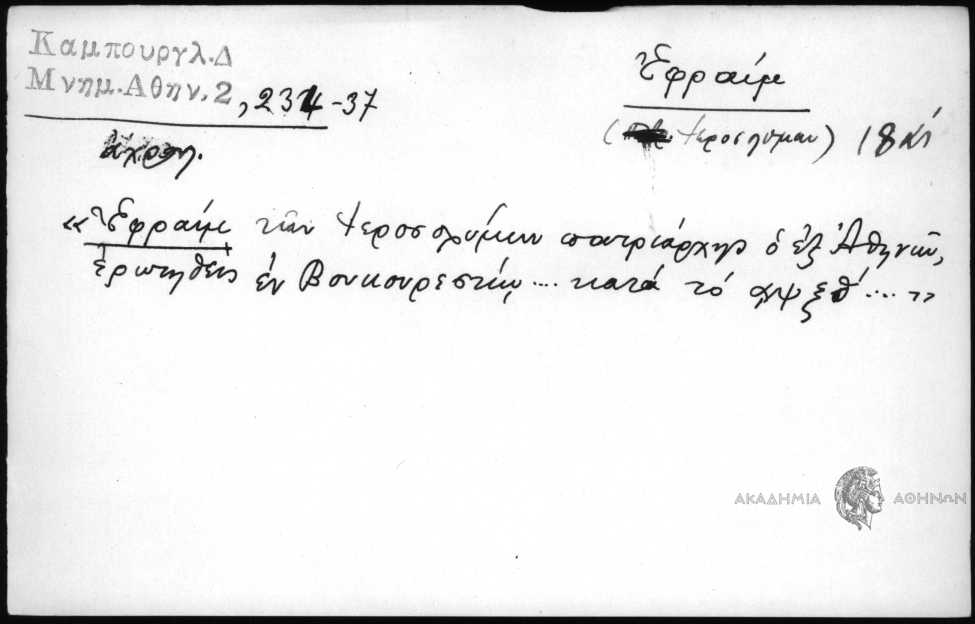 Καμπουργλ.Δ
Μνημ.Αθην.2, 234-37
ἀχρον.
Ἐφραίμ
(Ἱεροσολύμων) 18 αἰ
«Ἐφραίμ τῶν Ἱεροσολύμων πατριάρχης ὁ ἐξ Ἀθηνῶν,
ἐρωτηθείς ἐν Βουκουρεστίῳ .... κατά τό αψξθ΄.... »
ΑΚΑΔΗΜΙΑ ΑΘΗΝΩΝ